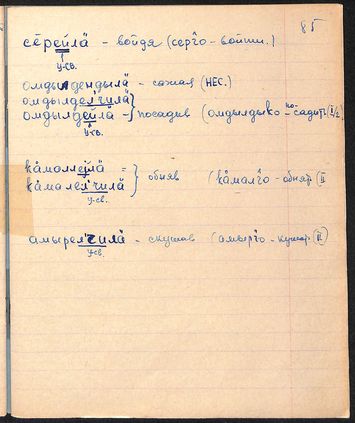 85
се̄рейлӓ – войдя (серг̌о – войти.)
у-св.
омдыдендылӓ – сажая (НЕС.)
омдылдел'чилӓ
омдылдейлӓ – } посадив (омдылдыко – по-садить II/2)
у-св.
ка̊моллейлӓ =
ка̊малел'чилӓ } обняв (ка̊малг̌о – обнять II
у-св.
амырел'чилӓ – скушав (амырг̌о – кушать II)
у-св.